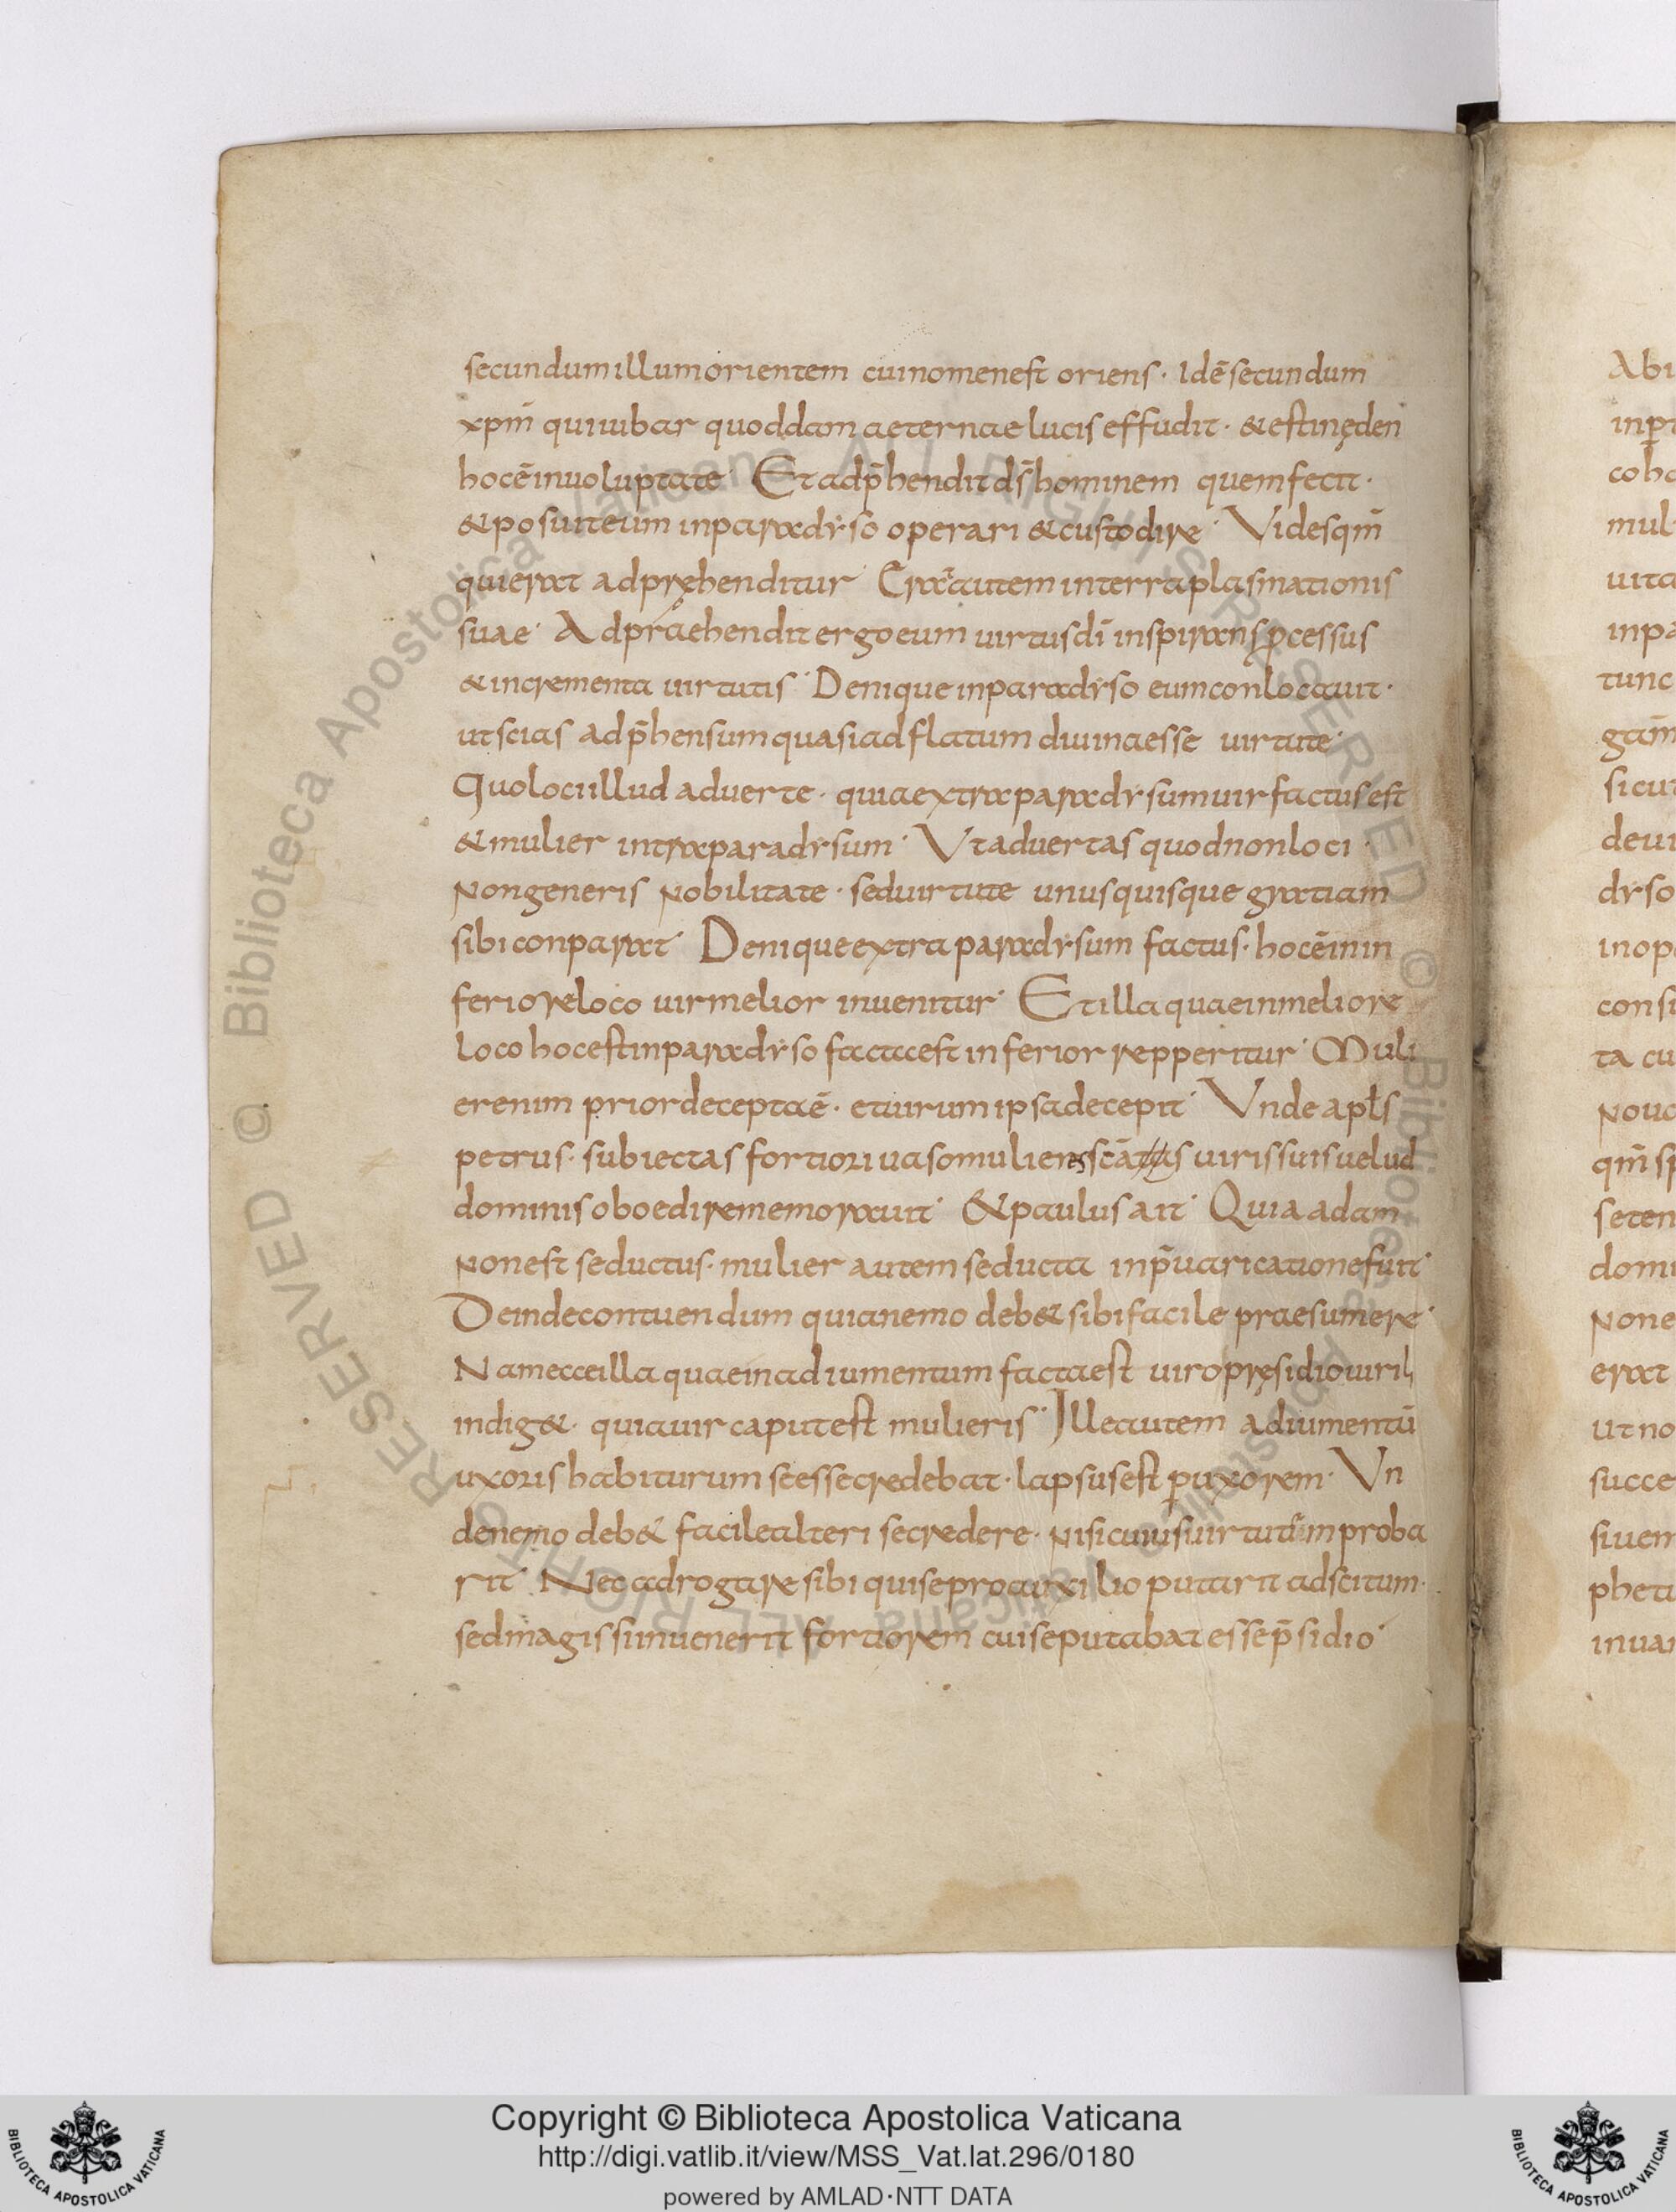 secundum illum orientem cui nomen est oriens · Id ē secundum
xp̄m qui iubar quoddam aeternae lucis effudit · & est in ęden
hoc ē in uoluptate · Et adp̄hendit d̄s hominem quem fecit ·
& posuit eum in paradyso operari & custodire · Vides qm̄
qui erat adpręhenditur · Erat autem in terra plasmationis
suae · Adpraehendit ergo eum uirtus dī inspirans ꝓcessus
& incrementa uirtutis · Denique in paradyso eum conlocauit ·
ut scias adp̄hensum quasi adflatum diuina esse uirtute ·
Quo loci illud aduerte · quia extra paradysum uir factus est
& mulier intra paradysum · Vt aduertas quod non loci ·
non generis nobilitate · sed uirtute unusquisque gratiam
sibi conparat · Denique extra paradysum factus · hoc ē in in
feriore loco uir melior inuenitur · Et illa quae in meliore
loco hoc est in paradyso facta est inferior repperitur · Muli
er enim prior decepta ē · et uirum ipsa decepit · Vnde apłs
petrus · subiectas fortiori uaso mulieres scās uiris suis uelud
dominis oboedire memorauit · & paulus ait · Quia adam
non est seductus · mulier autem seducta in p̄uaricatione fuit ·
Deinde contuendum quia nemo deb& sibi facile praesumere ·
Nam ecce illa quae in adiumentum facta est uiro pręsidio uirili
indig& · quia uir caput est mulieris · Ille autem adiumentū
uxoris habiturum se esse credebat · lapsus est ꝑ uxorem · Vn
de nemo deb& facile alteri se credere · nisi cuius uirtutēm proba
rit · Nec adrogare sibi qui se pro auxilio putarit adscitum ·
sed magis si inuenerit fortiorem cui se putabat esse p̄sidio ·
Copyright © Biblioteca Apostolica Vaticana
http://digi.vatlib.it/view/MSS_Vat.lat.296/0180
powered by AMLAD·NTT DATA
BIBLIOTECA APOSTOLICA VATICANA
BIBLIOTECA APOSTOLICA VATICANA